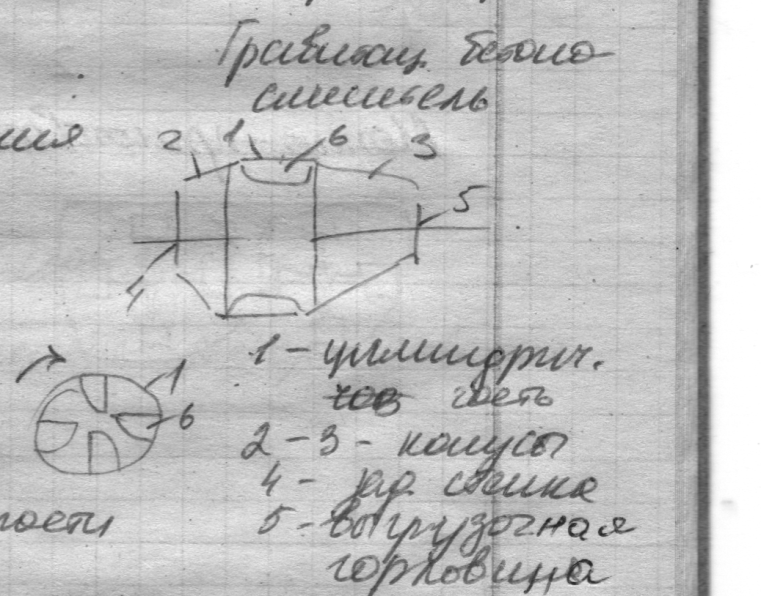 Гравитац. бетоно-
смеситель
ния 2 1 6 3
5
4
1 - цилиндрич.
часть
1
6
2-3 - конусы
4 - зад. стенка
ности 5 - выгрузочная
горловина